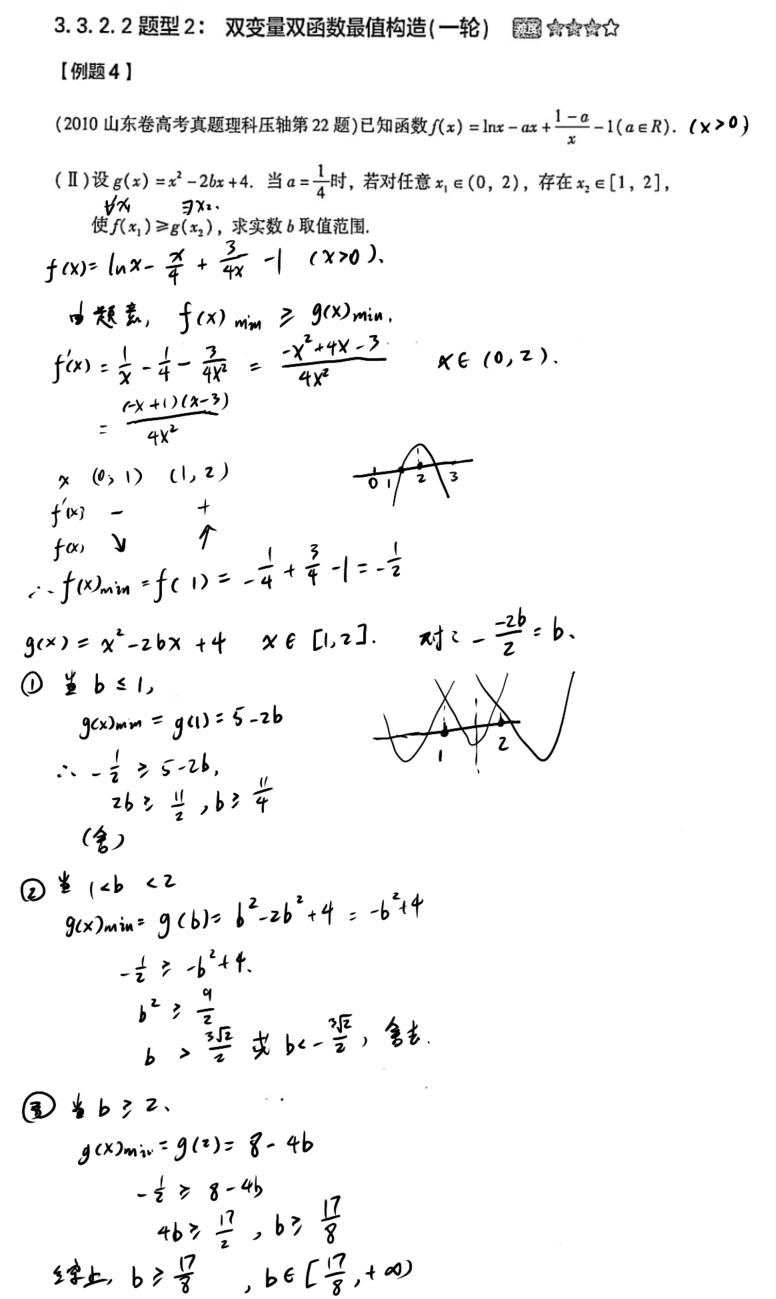 3.3.2.2 题型2： 双变量双函数最值构造(一轮) 难度 ★★★★☆
【例题4】
(2010 山东卷高考真题理科压轴第22题)已知函数 f(x) = lnx - ax + (1-a)/x - 1(a∈R). (x>0)
(Ⅱ)设 g(x) = x² - 2bx + 4. 当 a = 1/4 时，若对任意 x₁∈(0, 2)，存在 x₂∈[1, 2]，
∀x₁ ∃x₂.
使 f(x₁) ≥ g(x₂)，求实数 b 取值范围.
f(x) = lnx - x/4 + 3/4x - 1 (x>0).
由题意, f(x)min ≥ g(x)min.
f'(x) = 1/x - 1/4 - 3/4x² = (-x²+4x-3)/4x² x∈(0,2).
= (-x+1)(x-3)/4x²
x (0,1) (1,2)
0 1 2 3
f'(x) - +
f(x) ↘ ↗
∴ f(x)min = f(1) = -1/4 + 3/4 - 1 = -1/2
g(x) = x² - 2bx + 4 x∈[1,2]. 对: - -2b/2 = b.
① 当 b ≤ 1,
g(x)min = g(1) = 5-2b
1 2
∴ -1/2 ≥ 5-2b,
2b ≥ 11/2, b ≥ 11/4
(舍)
② 当 1<b<2
g(x)min = g(b) = b²-2b²+4 = -b²+4
-1/2 ≥ -b²+4.
b² ≥ 9/2
b > 3√2/2 或 b<-3√2/2, 舍去.
③ 当 b ≥ 2.
g(x)min = g(2) = 8-4b
-1/2 ≥ 8-4b
4b ≥ 17/2, b ≥ 17/8
综上, b ≥ 17/8, b∈[17/8, +∞)